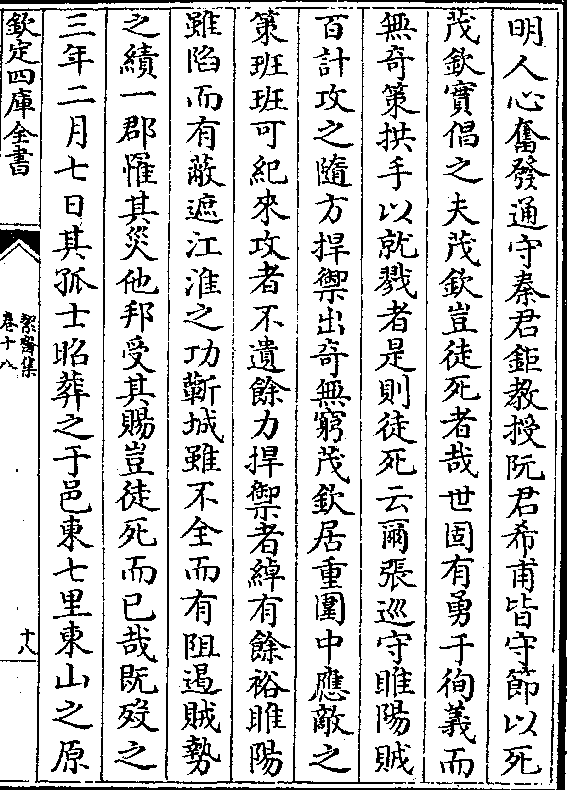 明人心奮發通守秦君鉅教授阮君希甫皆守節以死
茂欽實倡之夫茂欽豈徒死者哉世固有勇于徇義而
無奇策拱手以就戮者是則徒死云爾張巡守睢陽賊
百計攻之隨方捍禦出奇無窮茂欽居重圍中應敵之
策班班可紀來攻者不遺餘力捍禦者綽有餘裕睢陽
雖陷而有蔽遮江淮之功蘄城雖不全而有阻遏賊勢
之績一郡罹其災他邦受其賜豈徒死而已哉既歿之
三年二月七日其孤士昭葬之于邑東七里東山之原
欽定四庫全書
絜齋集
卷十八
十八